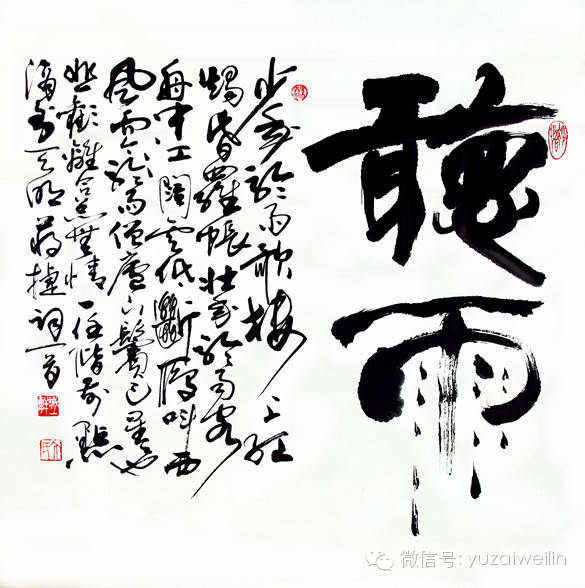 聽雨
少年聽雨歌樓上紅
燭昏羅帳壯年聽雨客
舟中江闊雲低斷雁叫西
風而今聽雨僧廬下鬢已星星也
悲歡離合總無情一任階前點
滴到天明蔣捷詞一首
微信号: yuzaiweilin